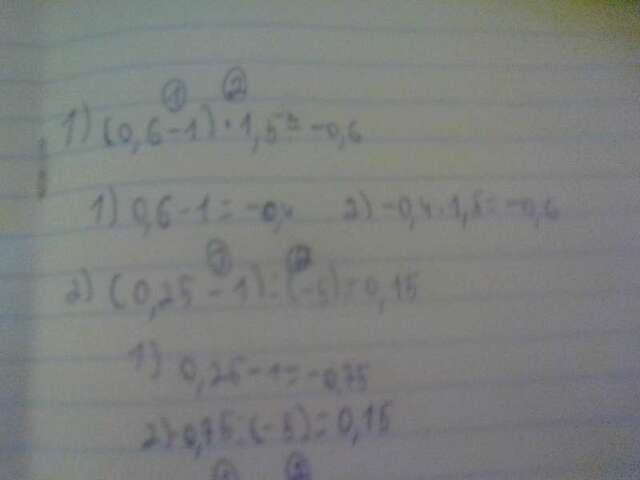 ① ②
1) (0,6-1)·1,5=-0,6
1) 0,6-1=-0,4 2) -0,4·1,5=-0,6
① ②
2) (0,25-1):(-5)=0,15
1) 0,25-1=-0,75
2)-0,75:(-5)=0,15
① ②